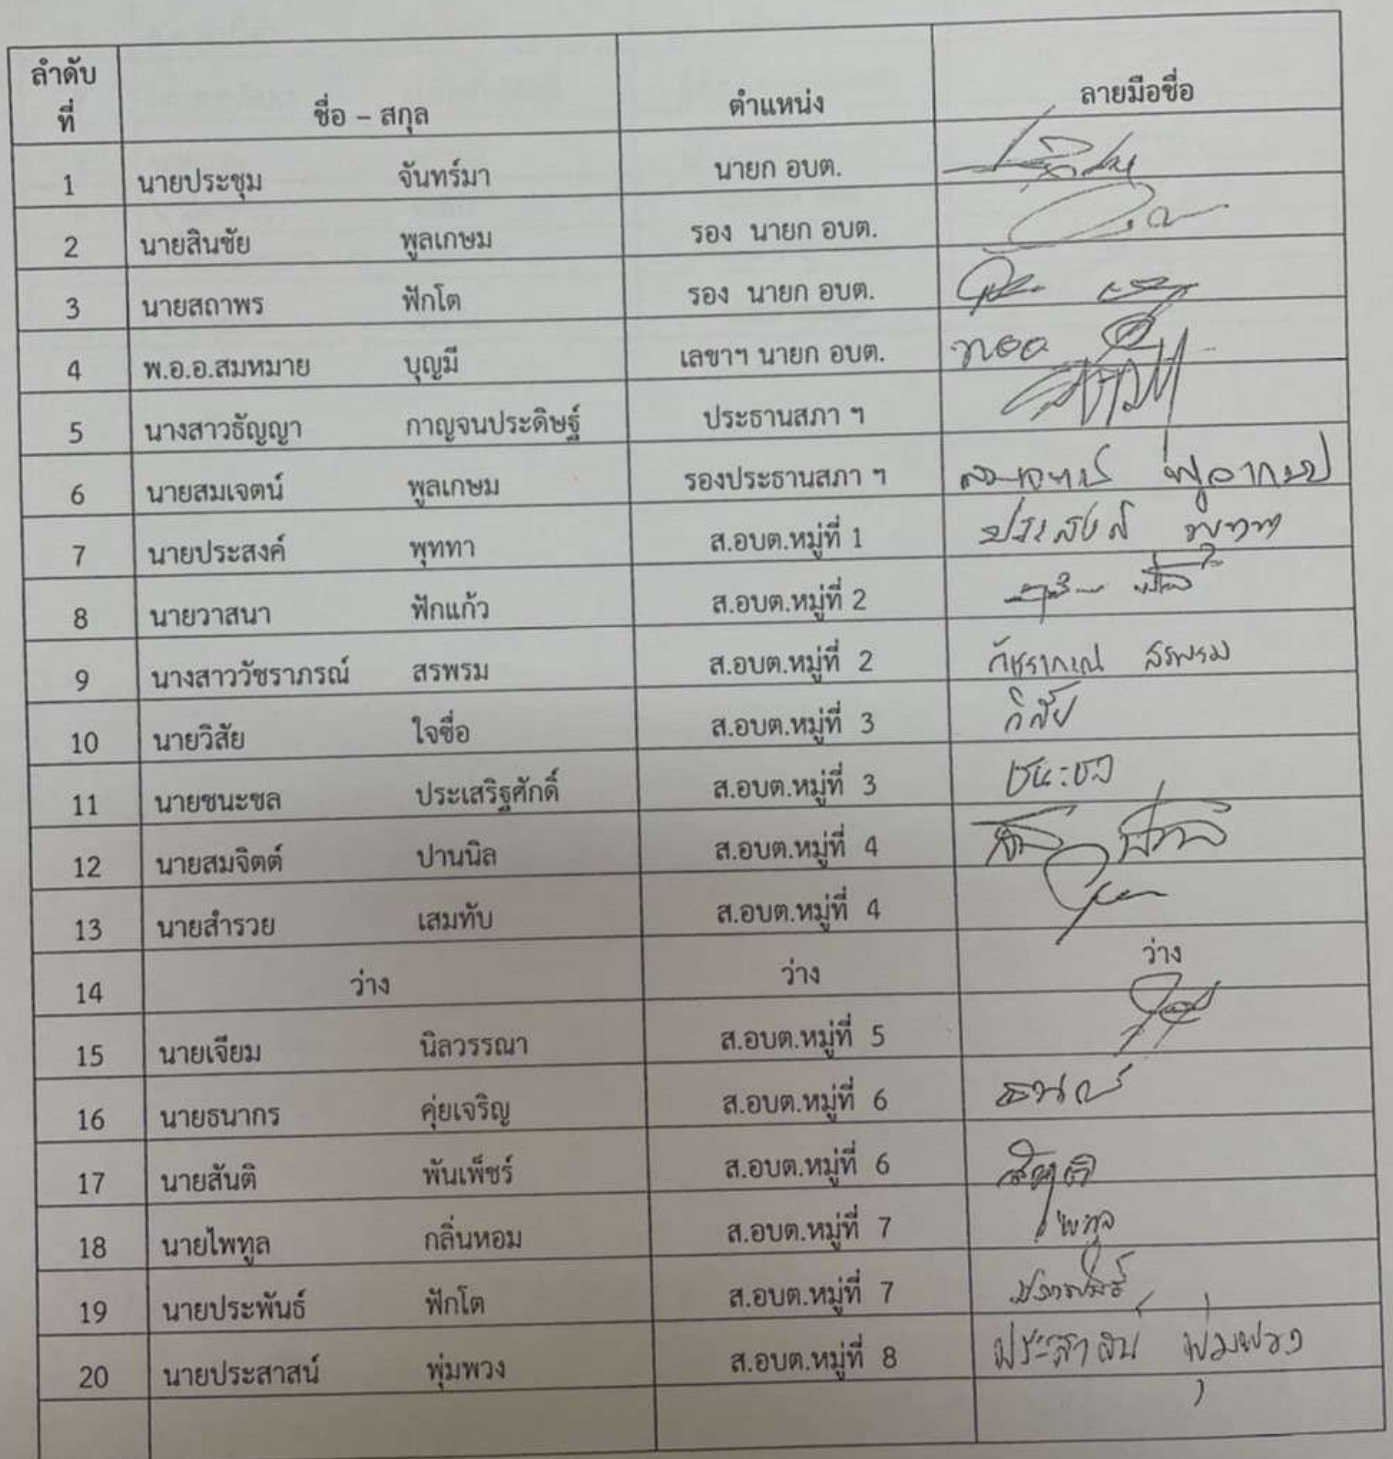 ลำดับที่ ชื่อ – สกุล ตำแหน่ง ลายมือชื่อ
1 นายประชุม จันทร์มา นายก อบต.
2 นายสินชัย พูลเกษม รอง นายก อบต.
3 นายสถาพร ฟักโต รอง นายก อบต.
4 พ.อ.อ.สมหมาย บุญมี เลขาฯ นายก อบต.
5 นางสาวธัญญา กาญจนประดิษฐ์ ประธานสภา ฯ
6 นายสมเจตน์ พูลเกษม รองประธานสภา ฯ
7 นายประสงค์ พุททา ส.อบต.หมู่ที่ 1 ประสงค์ พุททา
8 นายวาสนา ฟักแก้ว ส.อบต.หมู่ที่ 2
9 นางสาววัชราภรณ์ สรพรม ส.อบต.หมู่ที่ 2 วัชราภรณ์ สรพรม
10 นายวิสัย ใจซื่อ ส.อบต.หมู่ที่ 3 วิสัย
11 นายชนะชล ประเสริฐศักดิ์ ส.อบต.หมู่ที่ 3 ชนะชล
12 นายสมจิตต์ ปานนิล ส.อบต.หมู่ที่ 4
13 นายสำรวย เสมทับ ส.อบต.หมู่ที่ 4
14 ว่าง ว่าง ว่าง
15 นายเจียม นิลวรรณา ส.อบต.หมู่ที่ 5
16 นายธนากร คุ่ยเจริญ ส.อบต.หมู่ที่ 6
17 นายสันติ พันเพ็ชร์ ส.อบต.หมู่ที่ 6 สันติ
18 นายไพทูล กลิ่นหอม ส.อบต.หมู่ที่ 7 ไพทูล
19 นายประพันธ์ ฟักโต ส.อบต.หมู่ที่ 7
20 นายประสาสน์ พุ่มพวง ส.อบต.หมู่ที่ 8 ประสาสน์ พุ่มพวง